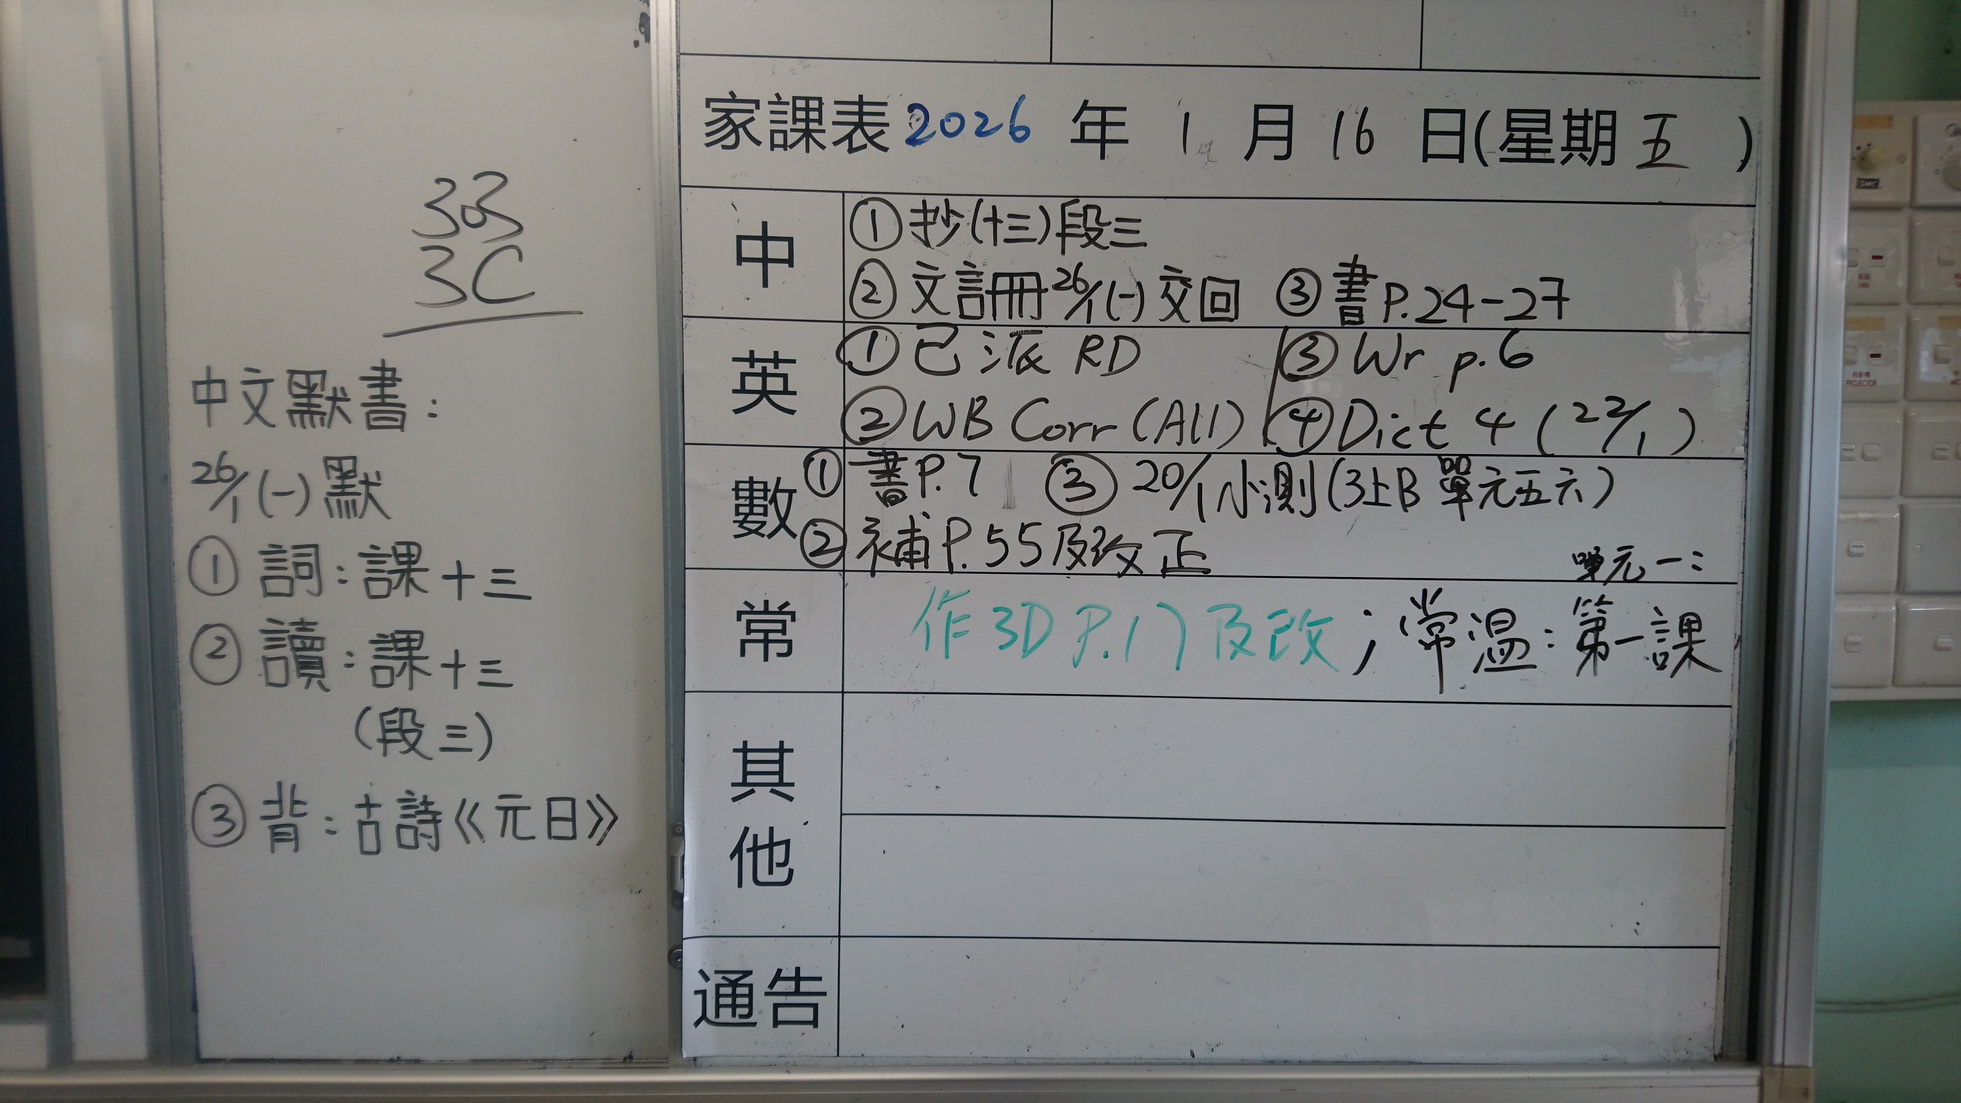 303
3C
中文默書：
26/1(一)默
① 詞：課十三
② 讀：課十三
(段三)
③ 背：古詩《元日》
家課表 2026 年 1 月 16 日(星期五)
中
① 抄(十三)段三
② 文討冊 26/1(一)交回 ③ 書P.24-27
英
① 已派 RD ③ Wr p.6
② WB Corr (All) ④ Dict 4 (22/1)
數
① 書P.7 ③ 20/1小測(3上B 單元五六)
② 補P.55及改正
常
單元一：
作3D P.17及改；常温：第一課
其他
通告
PROJECTOR